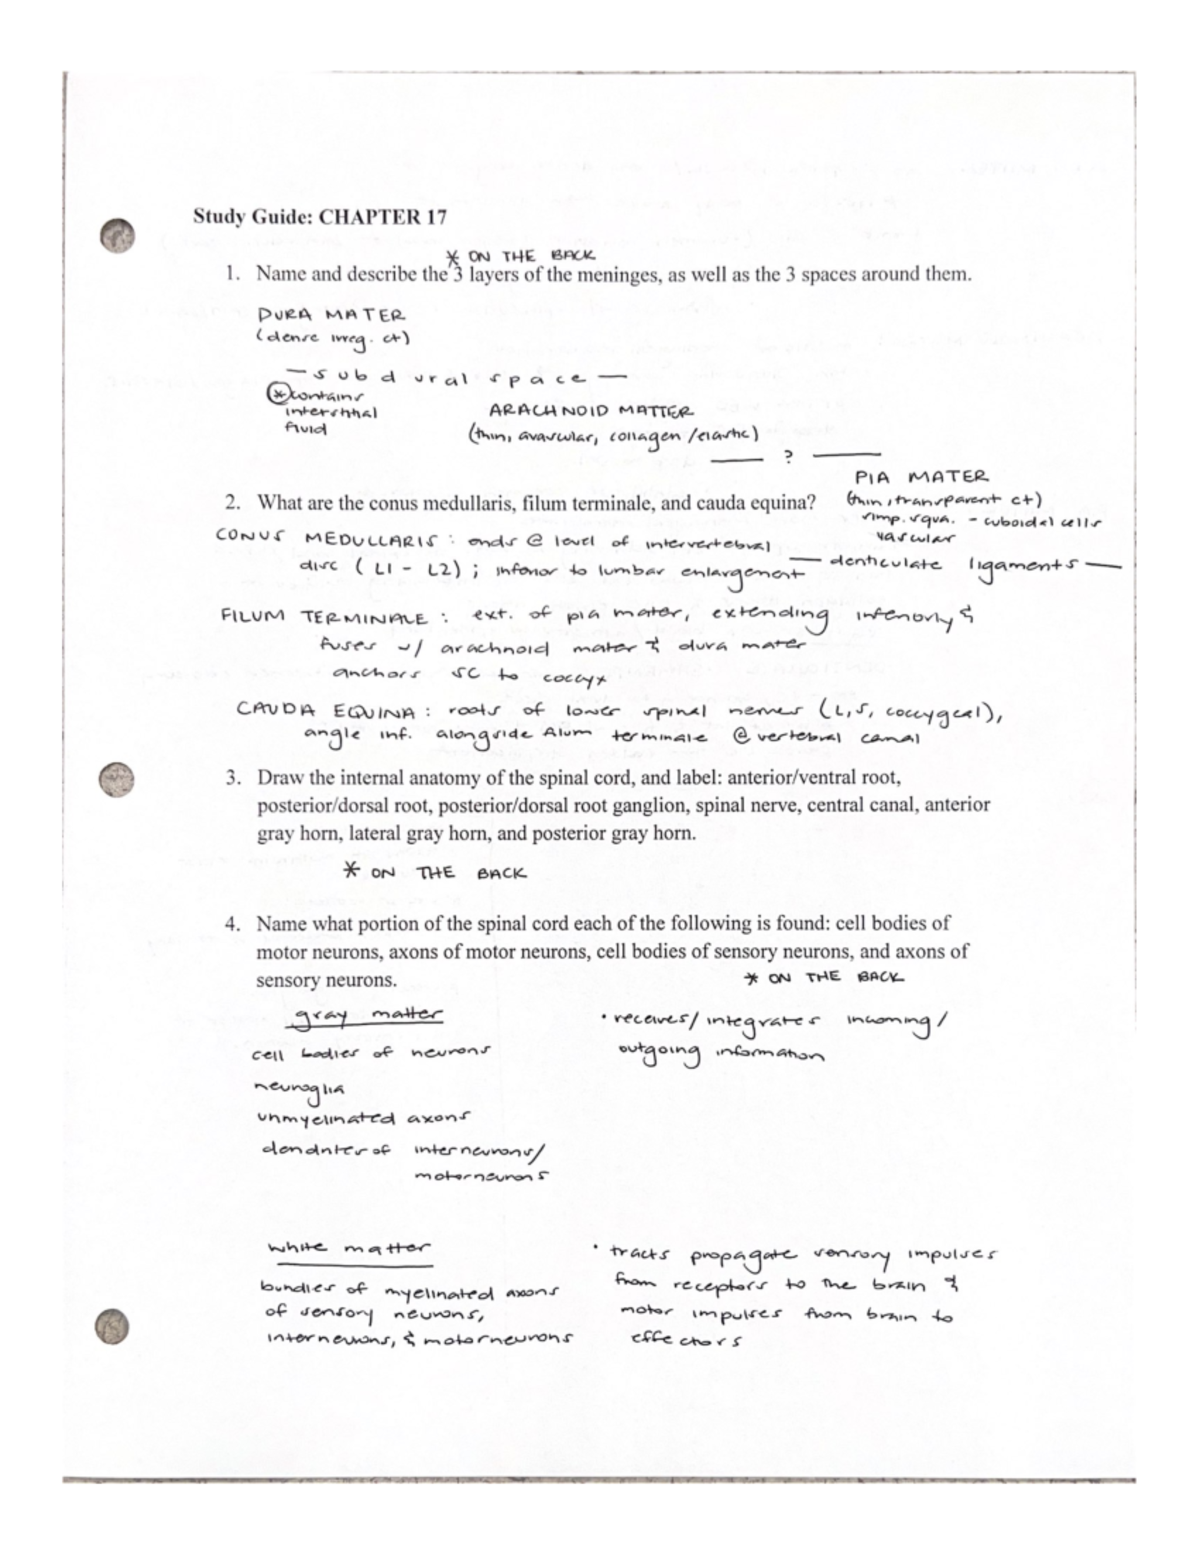 Study Guide: CHAPTER 17
* ON THE BACK
1. Name and describe the 3 layers of the meninges, as well as the 3 spaces around them.
DURA MATER
(dense irreg. ct)
— subdural space —
* contains
interstitial
fluid
ARACHNOID MATTER
(thin, avascular, collagen/elastic)
— ? —
PIA MATER
(thin, transparent ct)
simp. squa. - cuboidal cells
vascular
— denticulate ligaments —
2. What are the conus medullaris, filum terminale, and cauda equina?
CONUS MEDULLARIS: ends @ level of intervertebral
disc (L1 - L2); inferior to lumbar enlargement
FILUM TERMINALE: ext. of pia mater, extending inferiorly &
fuses w/ arachnoid mater & dura mater
anchors SC to coccyx
CAUDA EQUINA: roots of lower spinal nerves (L,S, coccygeal),
angle inf. alongside filum terminale @ vertebral canal
3. Draw the internal anatomy of the spinal cord, and label: anterior/ventral root,
posterior/dorsal root, posterior/dorsal root ganglion, spinal nerve, central canal, anterior
gray horn, lateral gray horn, and posterior gray horn.
* ON THE BACK
4. Name what portion of the spinal cord each of the following is found: cell bodies of
motor neurons, axons of motor neurons, cell bodies of sensory neurons, and axons of
sensory neurons.
* ON THE BACK
gray matter
cell bodies of neurons
neuroglia
unmyelinated axons
dendrites of interneurons/
motorneurons
• receives/integrates incoming/
outgoing information
white matter
bundles of myelinated axons
of sensory neurons,
interneurons, & motorneurons
• tracts propagate sensory impulses
from receptors to the brain &
motor impulses from brain to
effectors